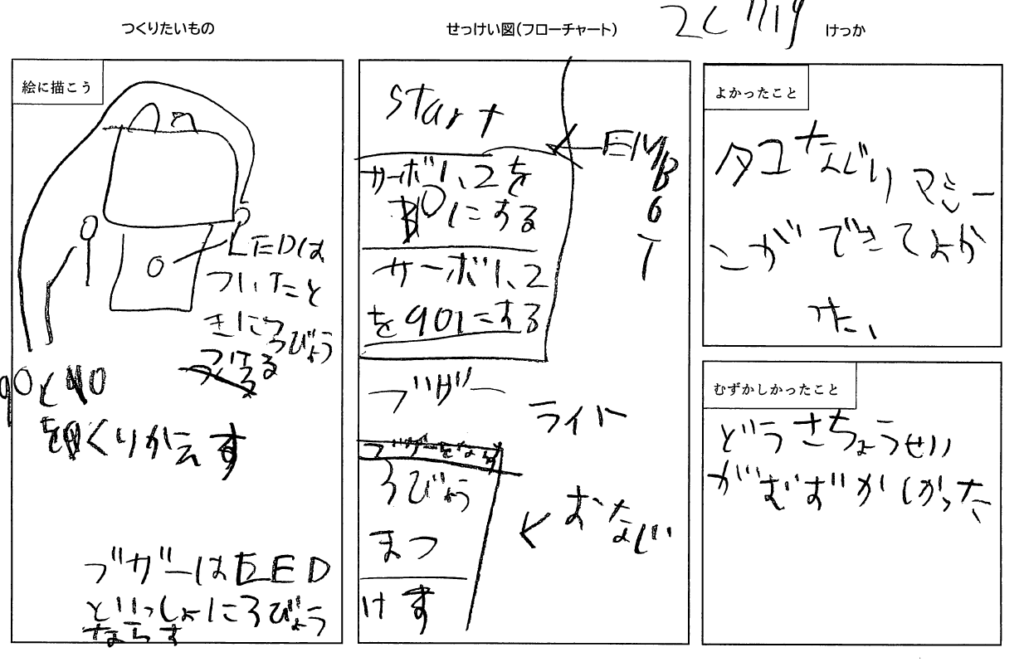 つくりたいもの
せっけい図(フローチャート)
けっか
絵に描こう
LEDは
ついたと
きに3びょう
つける
90と40
をくりかえす
ブザーはLED
といっしょに3びょう
ならす
start
←EMBOT
サーボ1、2を
10にする
サーボ1、2
を90にする
ブザー
ライト
ブザーをならす
3びょう
まつ
けす
おなじ
よかったこと
タコなぐりマシー
ンができてよか
た、
むずかしかったこと
どうさちょうせい
がむずかしかった